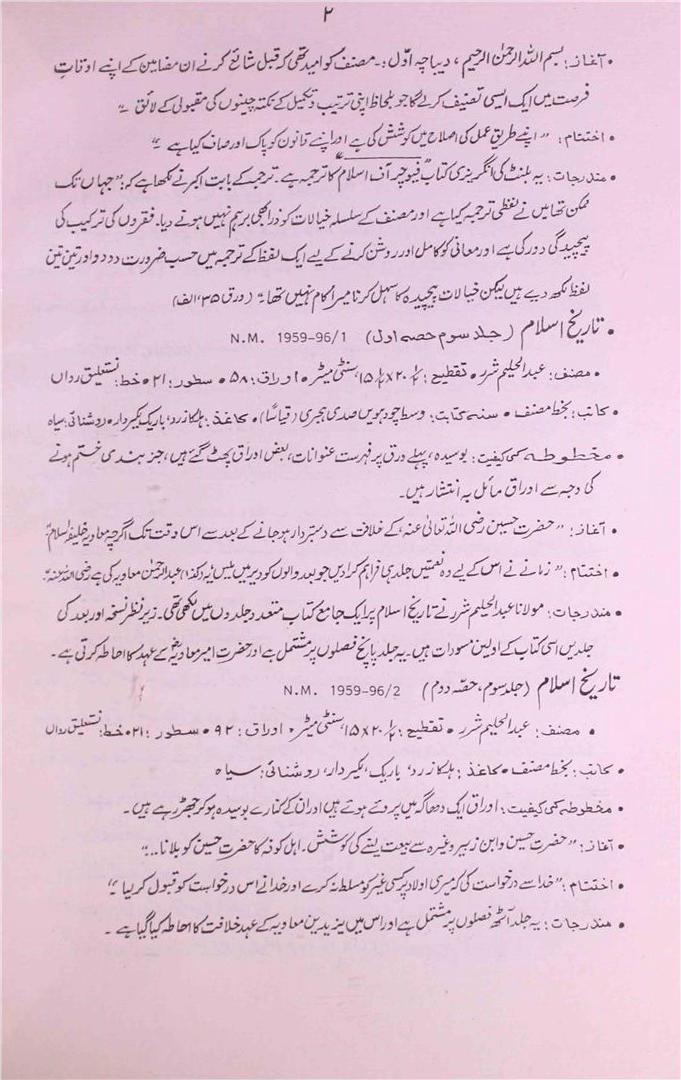 ۲
• آغاز: بسم اللہ الرحمٰن الرحیم، دیباچہ اوّل :- مصنف کو امید تھی کہ قبل شائع کرنے ان مضامین کے اپنے اوقاتِ
فرصت میں ایک ایسی تصنیف کرلے گا جو بلحاظ اپنی ترتیب و تکمیل کے نکتہ چینوں کی مقبولی کے لائق ۔"
• اختتام: "اپنے طریق عمل کی اصلاح میں کوشش کی ہے اور اپنے قانون کو پاک اور صاف کیا ہے ۔"
• مندرجات: یہ بلنٹ کی انگریزی کتاب "فیوچر آف اسلام" کا ترجمہ ہے۔ ترجمہ کے بابت اکبر نے لکھا ہے کہ: "جہاں تک
ممکن تھا میں نے لفظی ترجمہ کیا ہے اور مصنف کے سلسلہ خیالات کو ذرا بھی برہم نہیں ہونے دیا۔ فقروں کی ترکیب کی
پیچیدگی دور کی ہے اور معانی کو کامل اور روشن کرنے کے لیے ایک لفظ کے ترجمہ میں حسب ضرورت دو دو اور تین تین
لفظ لکھ دیے ہیں لیکن خیالات پیچیدہ کا سہل کرنا میرا کام نہیں تھا۔" (ورق ۳۵، الف)
• تاریخ اسلام (جلد سوم حصہ اول) N.M. 1959-96/1
• مصنف: عبدالحلیم شرر • تقطیع: ۲۰ × ۱۵ سنٹی میٹر • اوراق: ۵۸ • سطور: ۲۱ • خط: نستعلیق رواں
• کاتب: بخط مصنف • سنہ کتابت: وسط چودہویں صدی ہجری (قیاساً) • کاغذ: ہلکا زرد، باریک لکیردار • روشنائی: سیاہ
• مخطوطہ کی کیفیت: بوسیدہ، پہلے ورق پر فہرست عنوانات، بعض اوراق پھٹ گئے ہیں، جز بندی ختم ہونے
کی وجہ سے اوراق مائل بہ انتشار ہیں۔
• آغاز: "حضرت حسین رضی اللہ تعالیٰ عنہ، کے خلافت سے دستبردار ہوجانے کے بعد سے اس وقت تک اگرچہ معاویہ خلیفہ اسلام"
• اختتام: "زمانے نے اس کے لیے وہ نعمتیں جلد ہی فراہم کرادیں جو بعد والوں کو دیر میں ملیں" یہ (کذا) عبدالرحمٰن معاویہ کی ہے رضی اللہ عنہ"۔
• مندرجات: مولانا عبدالحلیم شرر نے تاریخ اسلام پر ایک جامع کتاب متعدد جلدوں میں لکھی تھی۔ زیر نظر نسخہ اور بعد کی
جلدیں اسی کتاب کے اولین مسودات ہیں۔ یہ جلد پانچ فصلوں پر مشتمل ہے اور حضرت امیر معاویہؓ کے عہد کا احاطہ کرتی ہے۔
تاریخ اسلام (جلد سوم، حصّہ دوم) N.M. 1959-96/2
• مصنف: عبدالحلیم شرر • تقطیع: ۲۰ × ۱۵ سنٹی میٹر • اوراق: ۹۲ • سطور: ۲۱ • خط: نستعلیق رواں
• کاتب: بخط مصنف • کاغذ: ہلکا زرد، باریک، لکیردار، روشنائی: سیاہ
• مخطوطہ کی کیفیت: اوراق ایک دھاگہ میں پروئے ہوئے ہیں اور ان کے کنارے بوسیدہ ہوکر جھڑ رہے ہیں۔
• آغاز: "حضرت حسین و ابن زبیر وغیرہ سے بیعت لینے کی کوشش۔ اہل کوفہ کا حضرت حسین کو بلانا ..."
• اختتام: "خدا سے درخواست کی کہ میری اولاد پر کسی غیر کو مسلط نہ کرے اور خدا نے اس درخواست کو قبول کرلیا ۔"
• مندرجات: یہ جلد آٹھ فصلوں پر مشتمل ہے اور اس میں یزید بن معاویہ کے عہد خلافت کا احاطہ کیا گیا ہے ۔